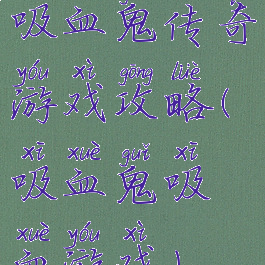 吸血鬼传奇
yóu xì gōng lüè
游戏攻略(
xī xuè guǐ xī
吸血鬼吸
xuè yóu xì
血游戏)